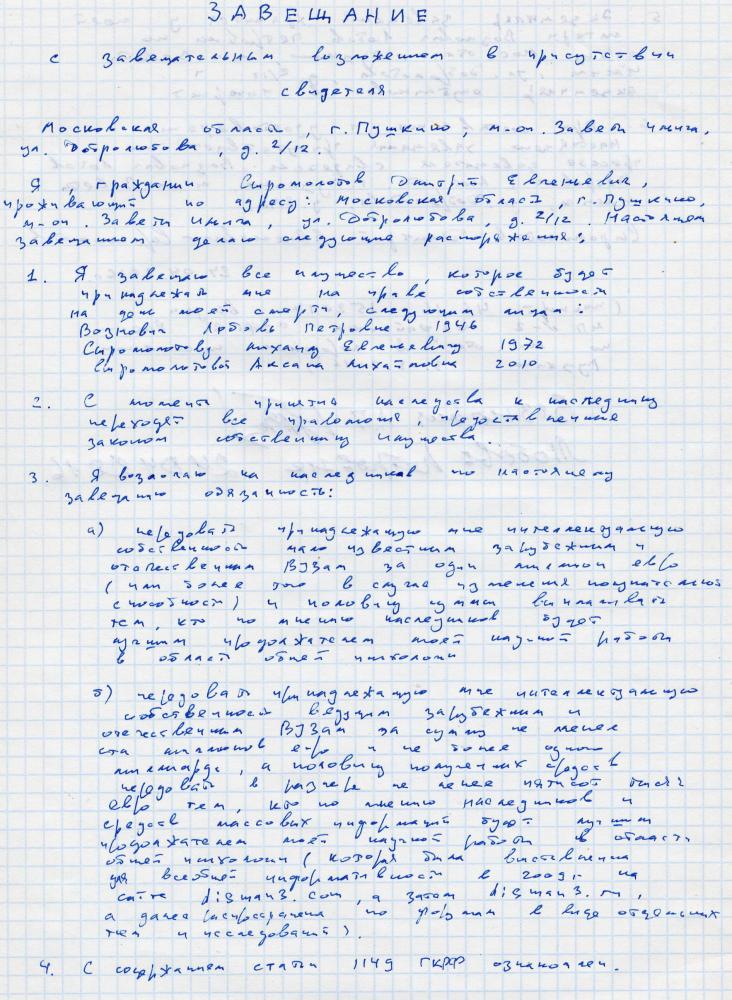 ЗАВЕЩАНИЕ
с завещательным возложением в присутствии
свидетеля
Московская область, г. Пушкино, м-он. Заветы Ильича,
ул. Добролюбова, д. 2/12.
Я, гражданин Сыромолотов Дмитрий Евгеньевич,
проживающий по адресу: Московская область, г. Пушкино,
м-он. Заветы Ильича, ул. Добролюбова, д. 2/12. Настоящем
завещанием делаю следующие распоряжения:
1. Я завещаю все имущество, которое будет
принадлежать мне на праве собственности
на день моей смерти, следующим лицам:
Любовь Петровне 1946
Сыромолотову Михаилу Евгеньевичу 1972
Сыромолотовой Аксана Михайловна 2010
2. С момента принятия наследства к наследнику
переходят все правомочия, предоставленные
законом собственнику имущества
3. Я возлагаю на наследников по настоящему
завещанию обязанность:
а) передовать принадлежащую мне интеллектуальную
собственность мало известным зарубежным и
отечественным ВУЗам за один миллион евро
(или более того в случае изменения покупательной
способности) и половину суммы выплачивать
тем, кто по мнению наследников будет
лучшим продолжателем моей научной работы
в област общей психологии
б) передовать принадлежащую мне интеллектуальную
собственность ведущим зарубежным и
отечественным ВУЗам за сумму не менее
ста миллионов евро и не более одного
миллиарда, а половину полученных средств
передовать в размере не менее пятисот тысяч
евро тем, кто по мнению наследников и
средств массовых информаций будет лучшим
продолжателем моей научной работы в области
общей психологии (которая была выставлена
для всеобщей информативности в 2009г. на
сайте digman3.com, а затем digman3.ru,
а далее распространена по форумам в виде отдельных
тем и исследований).
4. С содержанием статьи 1149 ГКРФ ознакомлен.